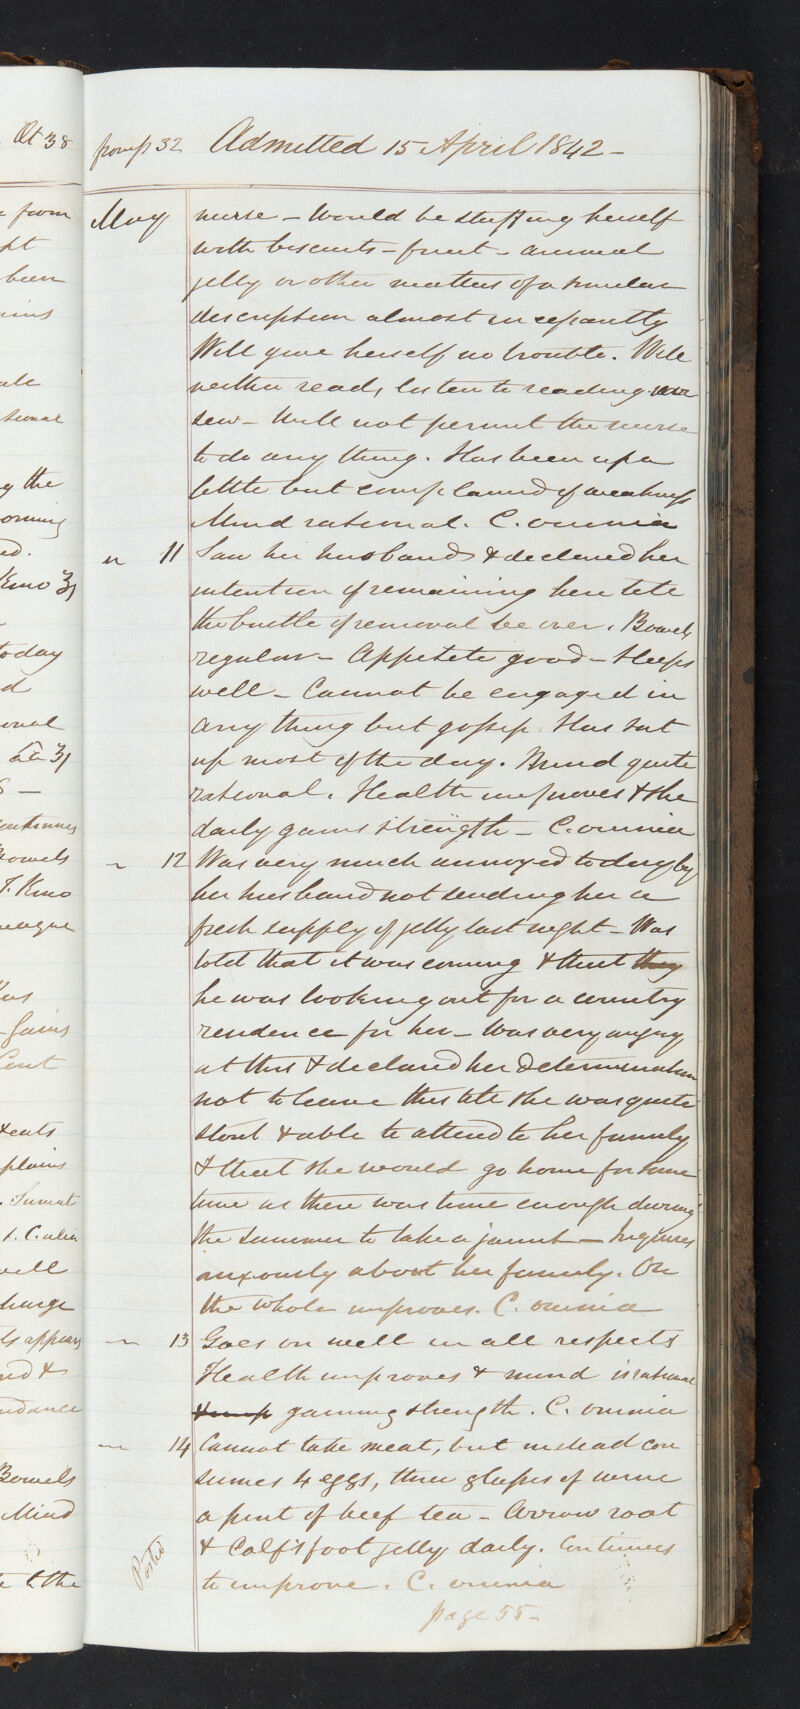 Æt 38
from p 32 Admitted 15 April 1842 -
May nurse - Would be stuffing herself
with biscuits - fruit - animal
jelly or other matters of a similar
description almost incessantly
Will give herself no trouble. Will
neither read, listen to reading nor
sew - Will not permit the nurse
to do any thing. Has been up a
little but complained of weakness
Mind rational. C. omnia
" 11 Saw her husband & declared her
intention of remaining here till
the bustle of removal be over. Bowels
regular - Appetite good - Sleeps
well - Cannot be engaged in
any thing but gossip. Has sat
up most of the day. Mind quite
rational. Health improves & she
daily gains strength - C. omnia
" 12 Was very much annoyed today by
her husband not sending her a
fresh supply of jelly last night - Was
told that it was coming & that they
he was looking out for a country
residence for her - Was very angry
at this & declared her determination
not to leave this till she was quite
stout & able to attend to her family
& that she would go home for some
time as there was time enough during
the summer to take a jaunt - Inquires
anxiously about her family. On
the whole improves. C. omnia
" 13 Goes on well in all respects
Health improves & mind is rational
& imp gaining strength. C. omnia
" 14 Cannot take meat, but instead con
sumes 4 eggs, three glasses of wine
a pint of beef tea - Arrow root
& Calf's foot jelly daily. Continues
to improve. C. omnia
Posted
page 55 -
from
been
the
today
Bowels
Gains
eats
well
appears
Bowels
Mind
to the